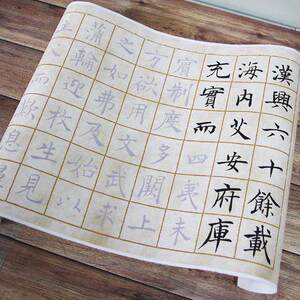 漢興六十餘載
海內艾安府庫
充實而四夷未
賓制度多闕上
方欲用文武求
之如弗及始以
蒲輪迎枚生見
而歎息